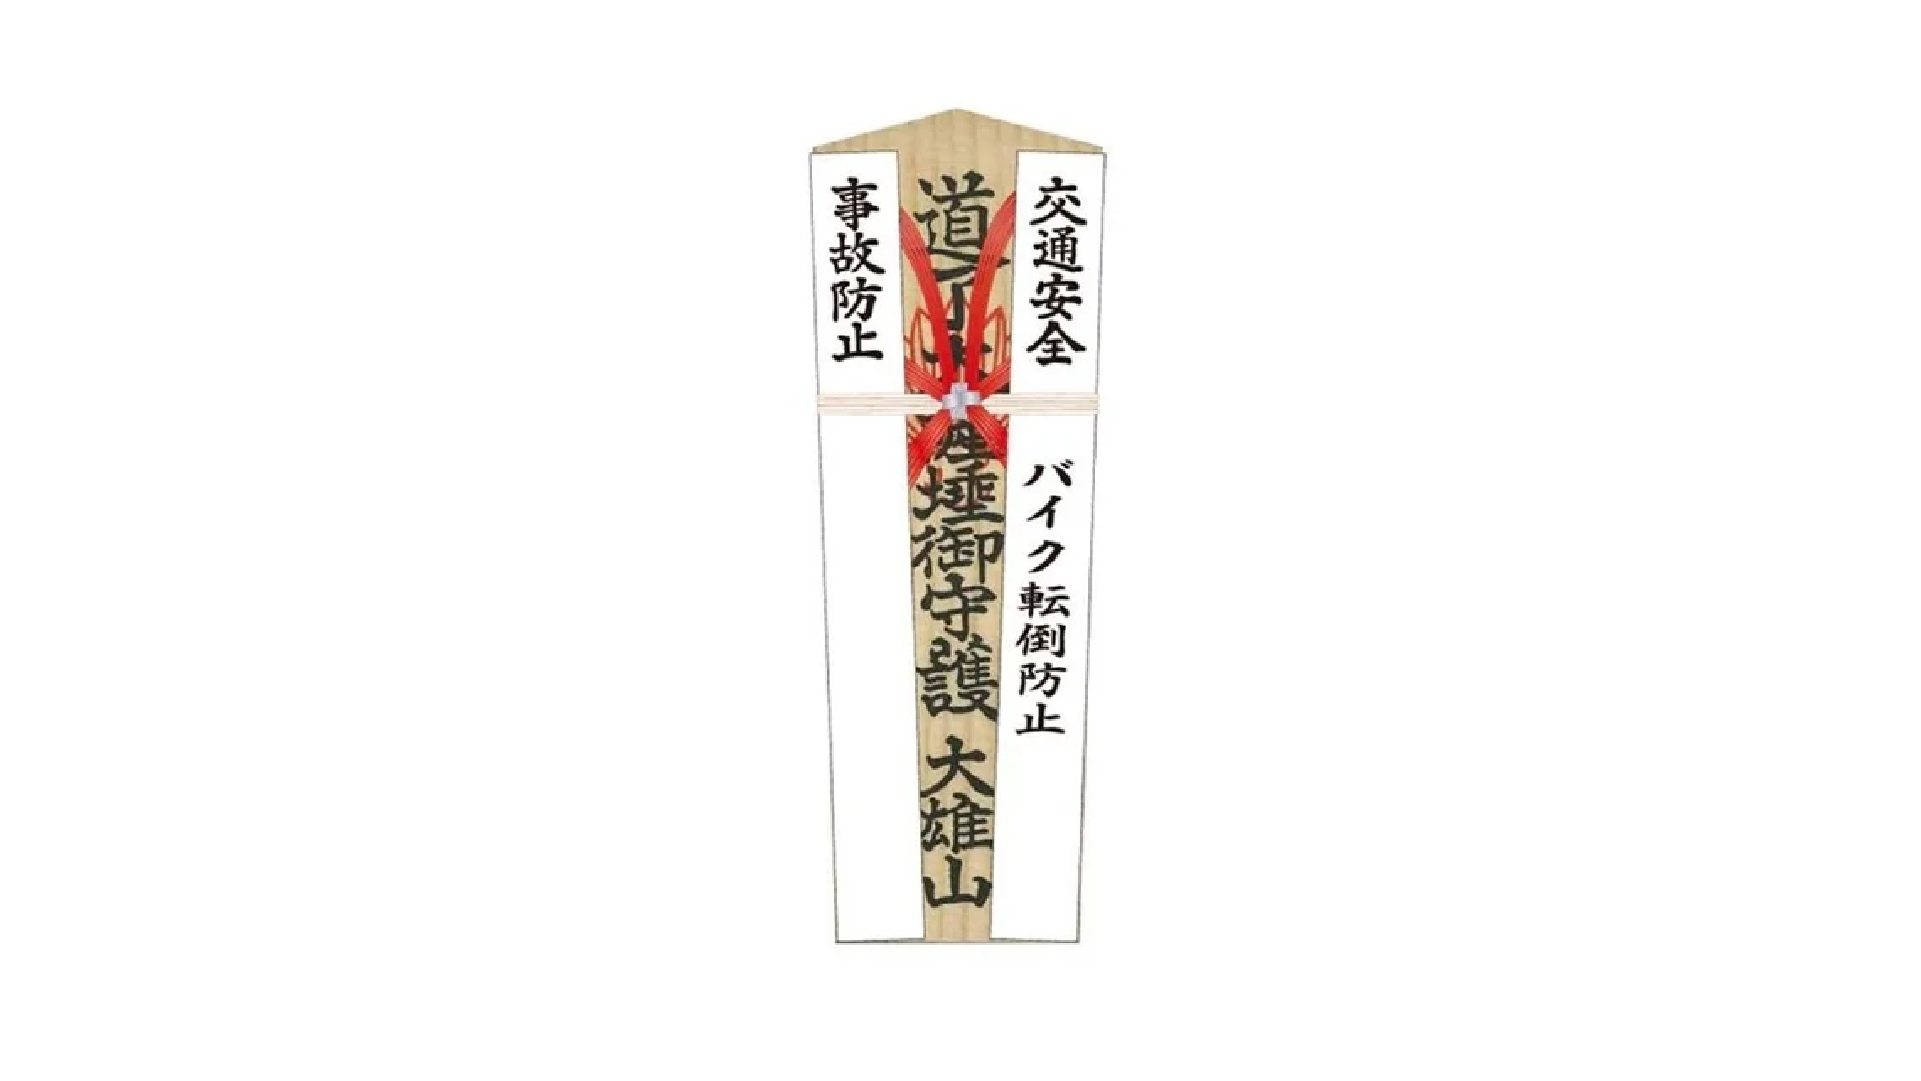 交通安全
バイク転倒防止
道了大
埵御守護 大雄山
事故防止